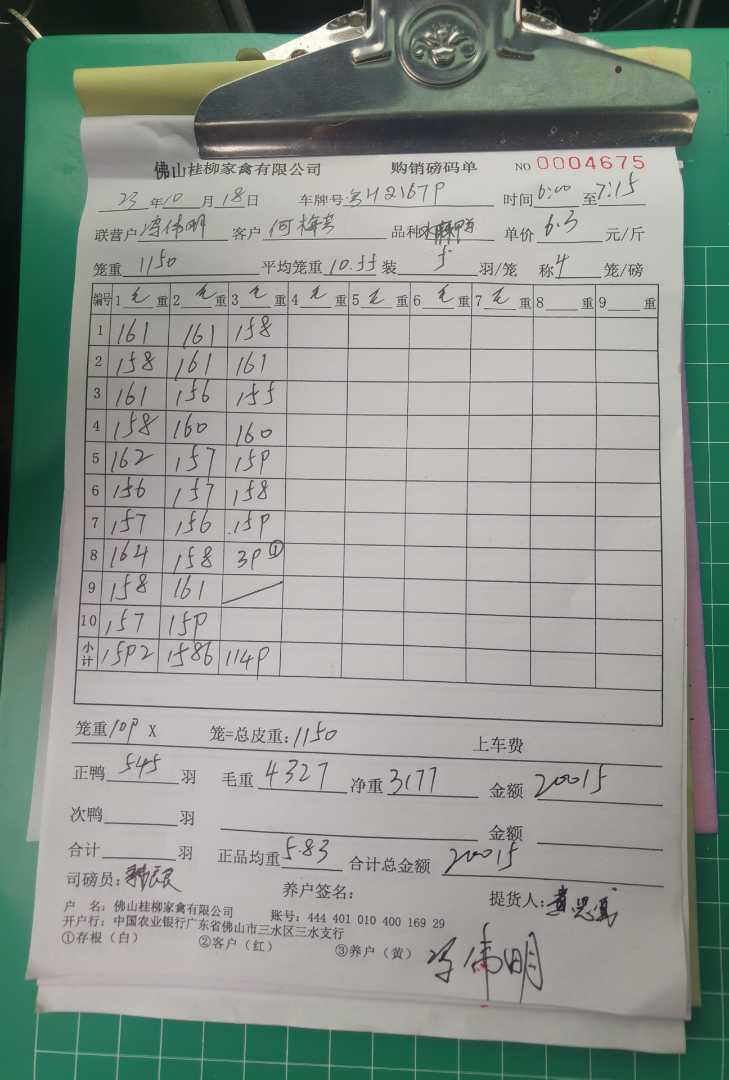 佛山桂柳家禽有限公司 购销磅码单 NO 0004675
23年10月18日 车牌号:粤H21679 时间6:00至7:15
联营户冯伟明 客户 品种 单价6.3元/斤
笼重1150 平均笼重10.55装5羽/笼 称4笼/磅
编号 1毛重 2毛重 3毛重 4毛重 5毛重 6毛重 7毛重 8重 9重
1 161 161 158
2 158 161 161
3 161 156 155
4 158 160 160
5 162 157 159
6 156 157 158
7 157 156 159
8 164 158 39①
9 158 161
10 157 159
小计 1592 1586 1149
笼重109X 笼=总皮重:1150 上车费
正鸭545羽 毛重4327 净重3177 金额20015
次鸭羽 金额
合计羽 正品均重5.83 合计总金额20015
司磅员: 养户签名: 提货人:
户 名:佛山桂柳家禽有限公司 账号:444 401 010 400 169 29
开户行:中国农业银行广东省佛山市三水区三水支行
①存根(白) ②客户(红) ③养户(黄) 冯伟明